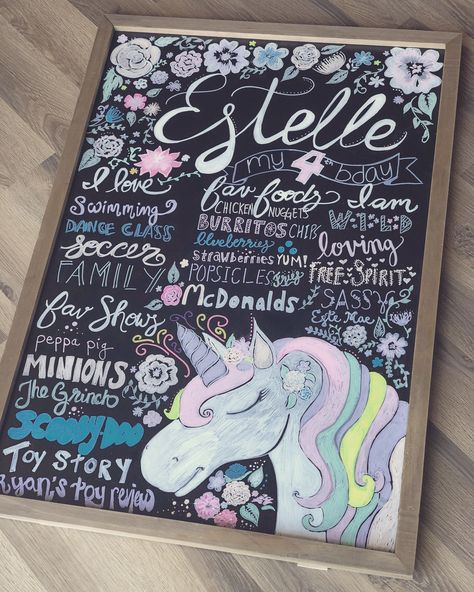 Estelle
my 4th bday
I love
Swimming
DANCE CLASS
soccer
FAMILY
fav Shows
peppa pig
MINIONS
The Grinch
SCOOBY-DOO
TOY STORY
Ryan's toy review
fav foods
CHICKEN NUGGETS
BURRITOS CHIPS
blueberries
strawberries YUM!
POPSICLES fries
McDonalds
I am
WILD
loving
FREE SPIRIT
SASSY
Este Mae